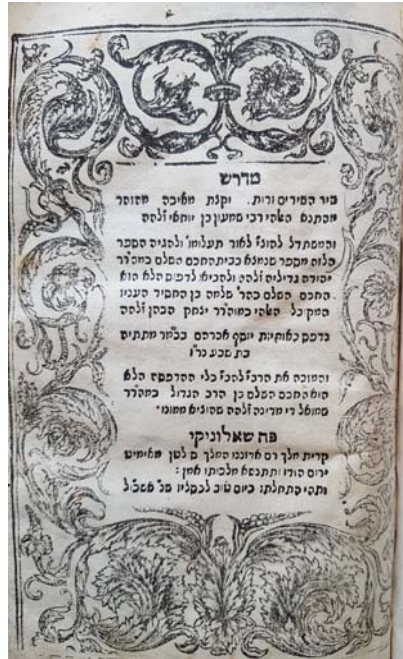 מדרש
שיר השירים ורות. וקצת מאיכה מהזוהר
מהתנא האלהי רבי שמעון בן יוחאי זלה״ה
והמשתדל להוציא לאור תעלומו׳ ולהגיה הספר
הלזה מספר שנמצא בבית החכם השלם כמה״רר
יהודה גדיליה זלה״ה ולהביאו לדפוס הלא הוא
החכם השלם כה״ר שלמה בן החסיד העניו
המקובל האלהי כמוה״רר יצחק הכהן זלה״ה
נדפס באותיות יוסף אברהם בכ״מר מתתיה
בת שבע נר״ו
והמזכה את הרבי׳ להכי׳ כלי ההדפסה הלא
הוא החכם השלם בן הרב הגדול כמה״רר
שמואל די מדינה זלה״ה שהוציא ממונו׳
פה שאלוניקי
קרית מלך רם אדוננו המלך סלטן מאימיט
ירום הודו ותתנשא מלכותו אמן:
ותהי התחלתו ביום טוב לכסליו שנ׳